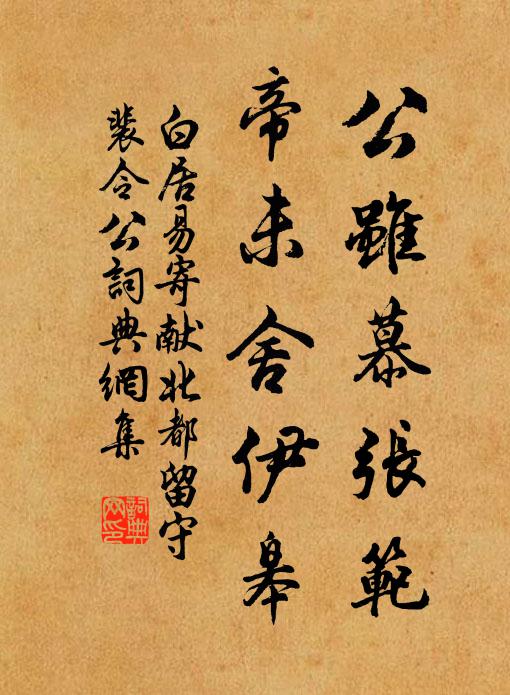 公雖慕張範
帝未舍伊皋
白居易寄献北都留守
裴令公詞典網集
詞典网印